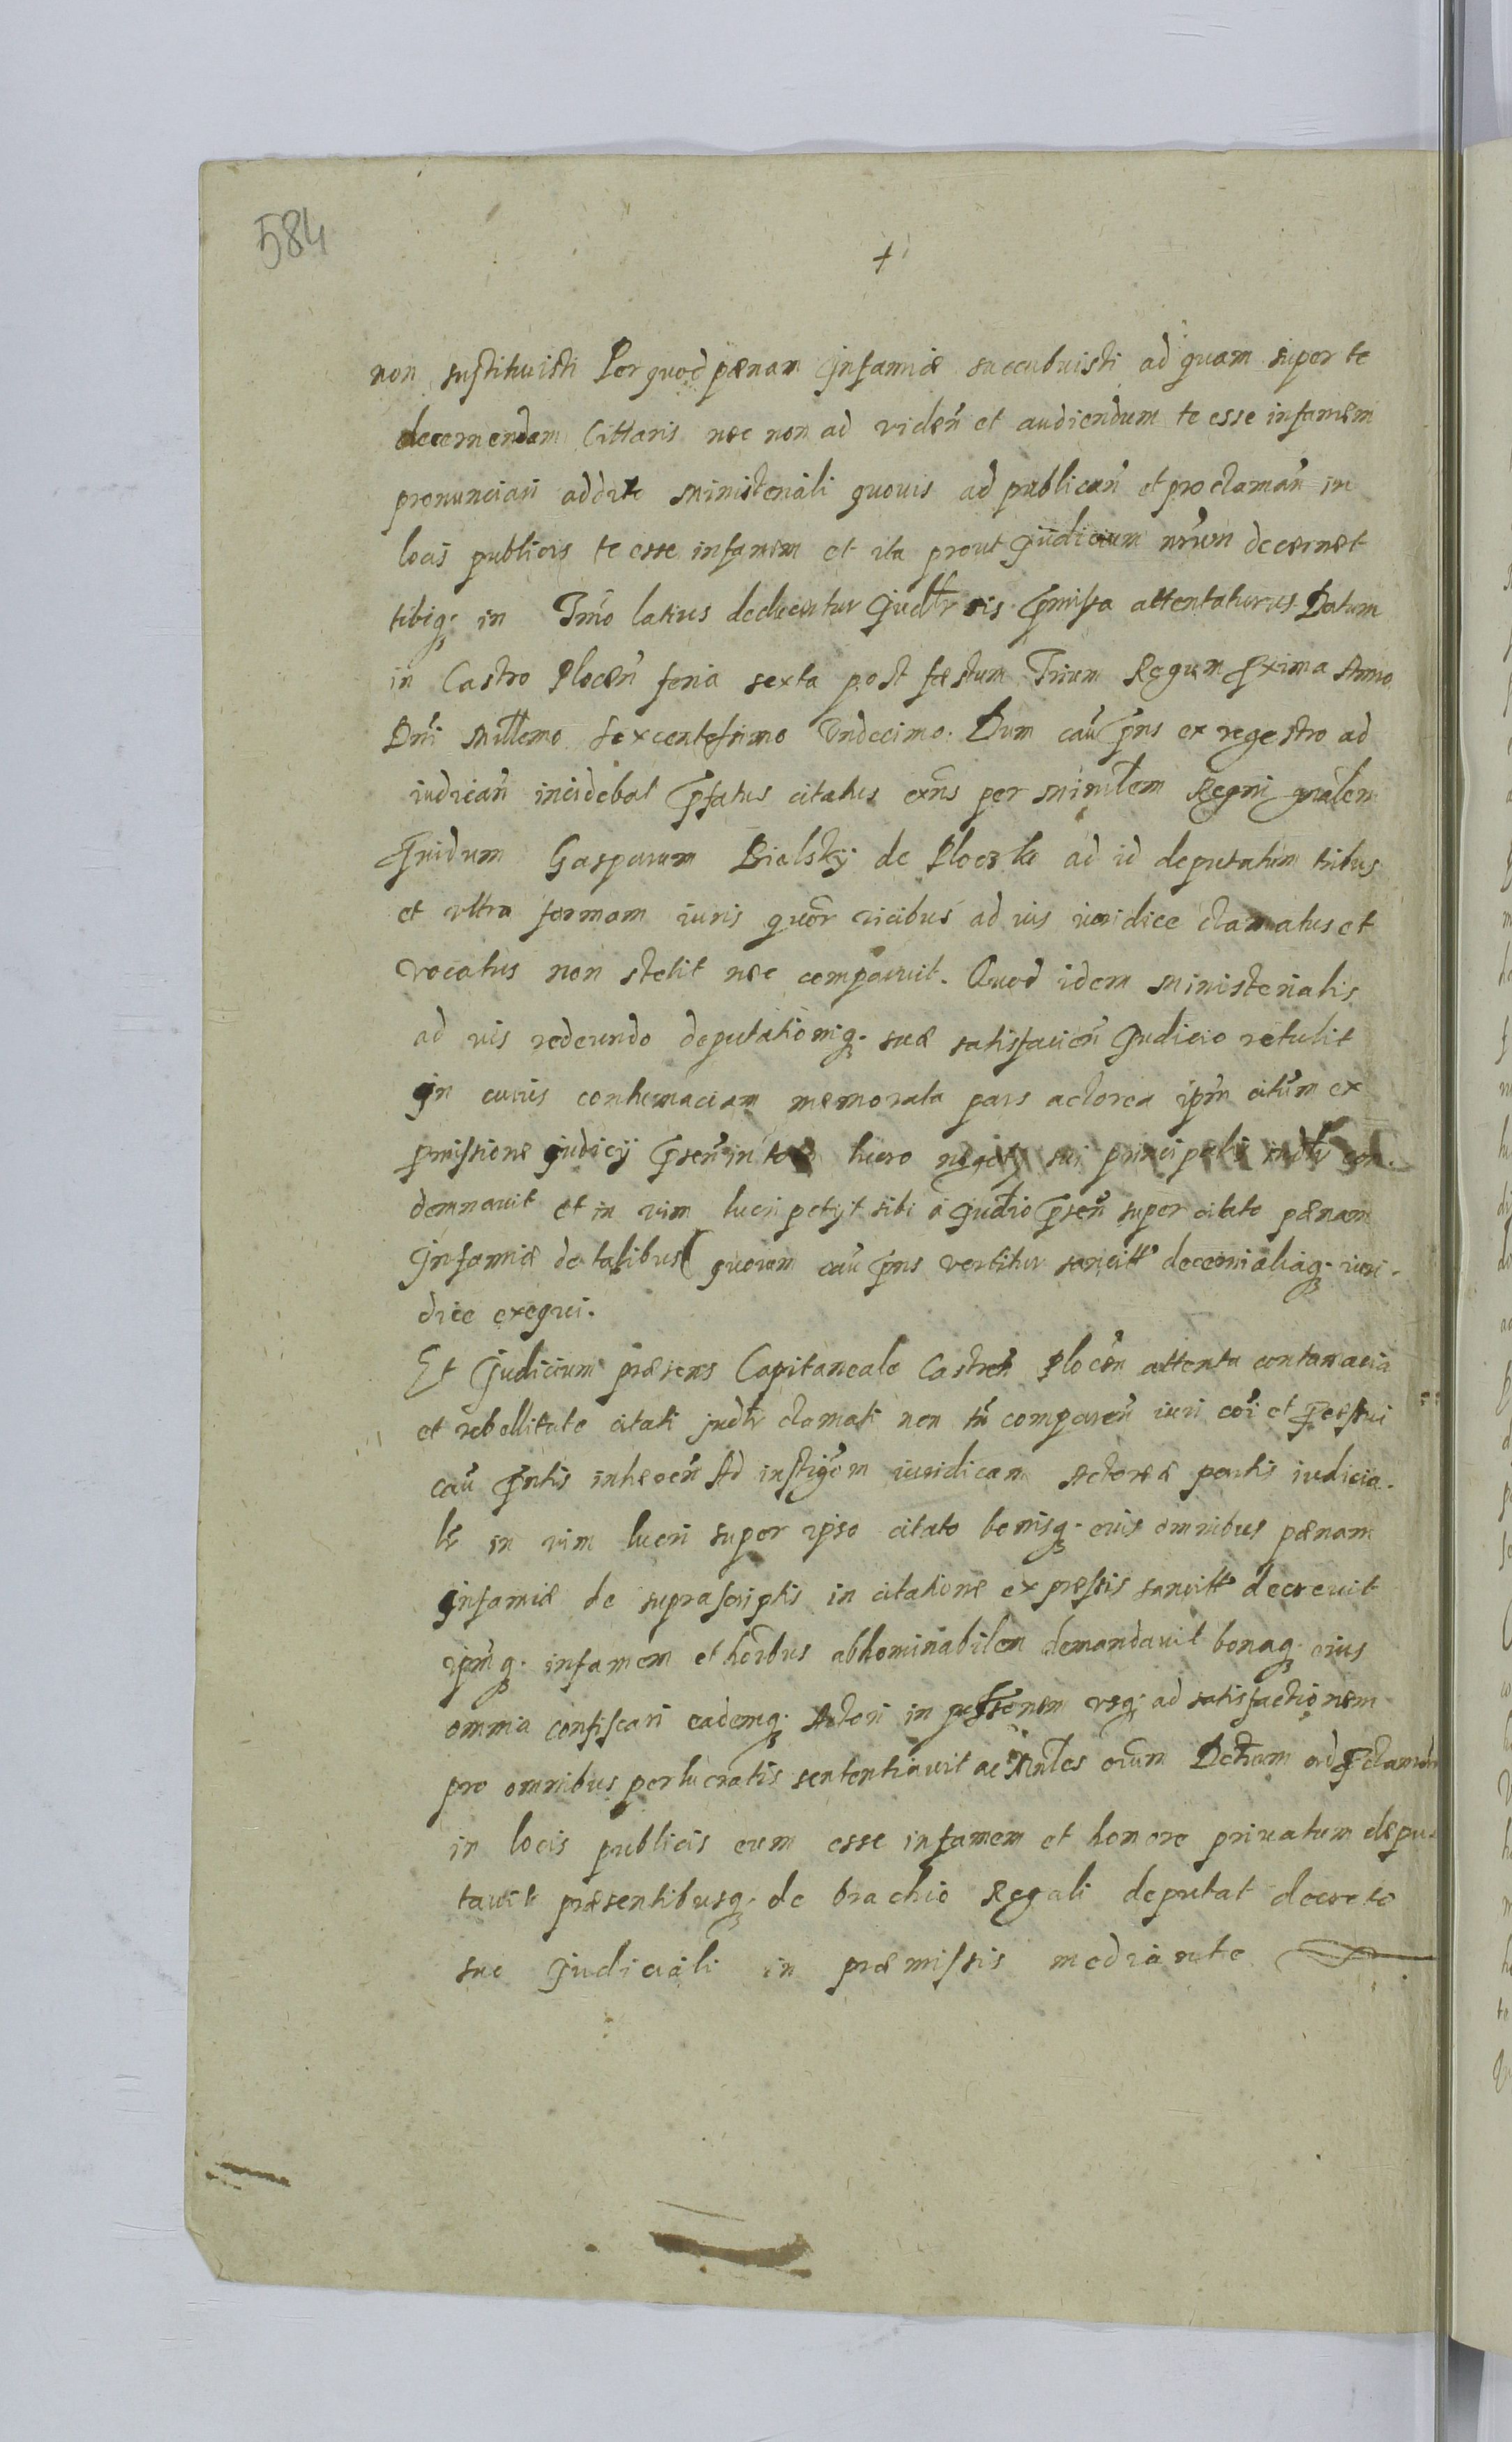 584
+
non sustituisti Per quod pænam Infamiæ succubuisti ad quam super te
decernendam Cittaris nec non ad videñ et audiendum te esse infamem
pronunciari addito Ministeriali quovis ad publicañ et proclamañ in
locis publicis te esse infamem et ita prout Judicium nrũm decernet
tibiq; in Tmo latius deducentur Judtr ris pmissa attentaturus Datum
in Castro Plocen feria sexta post fæstum Trium Regum pxima Anno
Dni Millemo sexcentesimo Undecimo. Dum cau pns ex regestro ad
iudicañ incidebat pfatus citatus exñs per Ministlem Regni gnalem
pvidum Gasparum Bielsky de Ploczk ad id deputatum tribus
et ultra formam iuris quor vicibus ad ius iuridice clamatus et
vocatus non stetit nec comparuit. Quod idem Ministerialis
ad ius redeundo deputationiq; suæ satisfacien Judicio retulit
In cuius contumaciam memorata pars actorea ipm citum ex
pmissione Judicy psen in lucro sui principalis con.
demnavit et in vim lucri petyt sibi a Judtio psen super citato pænam
Infamiæ de talibus quorum cau pns vertitur sancitt decerni aliaq; iuri.
dice exequi.
Et Judicium præsens Capitaneale Castreñ Plocen attenta contumacia
et rebellitate citati judtr clamati non tñ compareñ iuri coi et pcessui
cau pntis inhæreñ Ad instigoem iuridicam Actoreæ partis iudicia.
lr in vim lucri super ipso citato bonisq; eius omnibus pænam
Infamiæ de suprascriptis in citatione expressis sancitt decrevit
ipmq; infamem et horibus abhominabilem demandavit bonaq; eius
omnia confiscari eademq; Actori in possonem usq; ad satisfactionem
pro omnibus perlucratis sententiavit ac Mintles oium ad pclamañ
in locis publicis eum esse infamem et honore privatum depu.
tavit præsentibusq; de brachio Regali deputat decreto
suo Judiciali in præmissis mediante